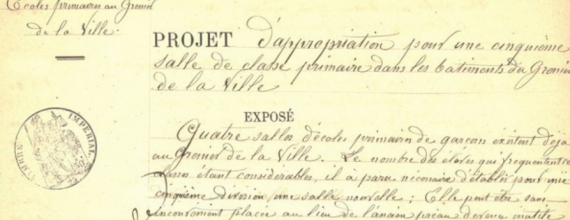 Ecoles primaires au Grenier
de la Ville.
PROJET d'appropriation pour une cinquième
salle de classe primaire dans les bâtiments du Grenier
de la Ville
EXPOSÉ
TIMBRE IMPERIAL
Quatre salles d'écoles primaires de garçons existent déjà
au Grenier de la Ville. Le nombre des élèves qui fréquentent ces
étant considérable, il a paru nécessaire d'établir pour une
cinquième division, une salle nouvelle; Elle peut être sans
inconvénient placée au lieu de l'ancien préau devenu inutile